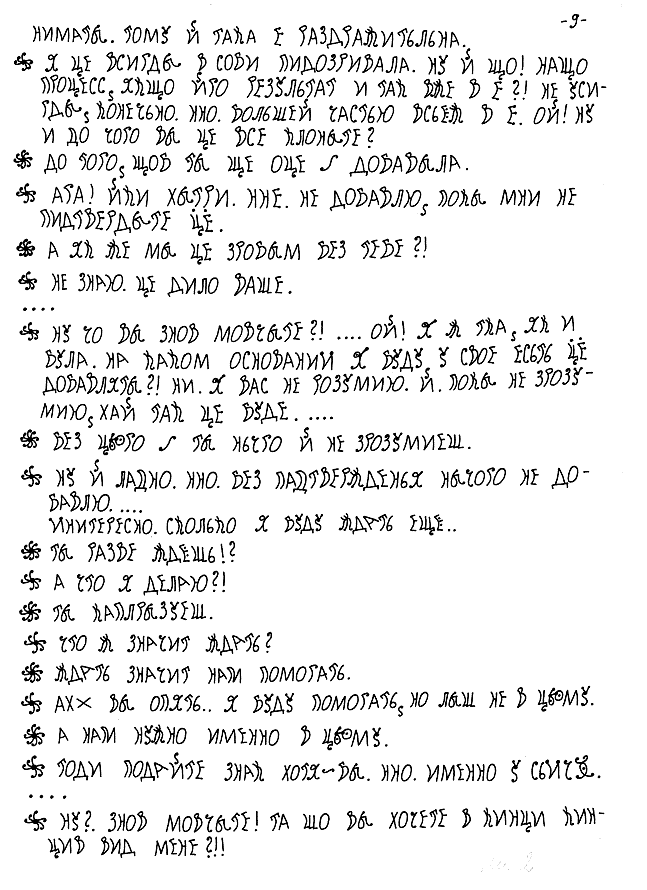 -9-
НИМАТЫ. ТОМУ Й ТАКА Е РАЗДРАЖИТЬЛЬНА.
Я ЦЕ ВСИГДЫ В СОБИ ПИДОЗРИВАЛА. НУ Й ЩО! НАЩО
ПРОЦЕСС, ЯКЩО ЙГО РЕЗУЛЬТАТ И ТАК ВЖЕ В Е?! НЕ УСИ-
ГДЫ, КОНЕЧЬНО. ННО. БОЛЬШЕЙ ЧАСТЬЮ ВСЬЕЖ В Е. ОЙ! НУ
И ДО ЧОГО ВЫ ЦЕ ВСЕ КЛОНЫТЕ?
ДО ТОГО, ЩОБ ТЫ ЩЕ ОЦЕ ДОБАВЫЛА.
АГА! ЙКИ ХЫТРИ. ННЕ. НЕ ДОБАВЛЮ, ПОКЫ МНИ НЕ
ПИДТВЕРДЫТЕ ЦЕ.
А ЯК ЖЕ МЫ ЦЕ ЗРОБЫМ БЕЗ ТЕБЕ?!
НЕ ЗНАЮ. ЦЕ ДИЛО ВАШЕ.
....
НУ ЧО ВЫ ЗНОВ МОВЧЫТЕ?! .... ОЙ! Я Ж ТКА, ЯК И
БУЛА. НА КАКОМ ОСНОВАНИИ Я БУДУ, У СВОЕ ЕСЬТЬ ЦЕ
ДОБАВЛЯТЫ?! НИ. Я ВАС НЕ РОЗУМИЮ. Й. ПОКЫ НЕ ЗРОЗУ-
МИЮ, ХАЙ ТАК ЦЕ БУДЕ. ....
БЕЗ ЦЬОГО ТЫ НЫЧГО Й НЕ ЗРОЗУМИЕШ.
НУ Й ЛАДНО. ННО. БЕЗ ПАДТВЕРЖДЕНЬЯ НЫЧОГО НЕ ДО-
БАВЛЮ. ....
ИНИТЕРЕСНО. СКОЛЬКО Я БУДУ ЖДАТЬ ЕЩЕ..
ТЫ РАЗВЕ ЖДЕШЬ!?
А ЧТО Я ДЕЛАЮ?!
ТЫ КАПЛРЫЗУЕШ.
ЧТО Ж ЗНАЧИТ ЖДАТЬ?
ЖДАТЬ ЗНАЧИТ НАМ ПОМОГАТЬ.
АХ ВЫ ОПЯТЬ.. Я БУДУ ПОМОГАТЬ, НО ЛЫШ НЕ В ЦЬОМУ.
А НАМ НУЖНО ИМЕННО В ЦЬОМУ.
ТОДИ ПОДАЙТЕ ЗНАК ХОТЯ-БЫ. ННО. ИМЕННО У
....
НУ?. ЗНОВ МОВЧЫТЕ! ТА ШО ВЫ ХОЧЕТЕ В КИНЦИ КИН-
ЦИВ ВИД МЕНЕ?!!